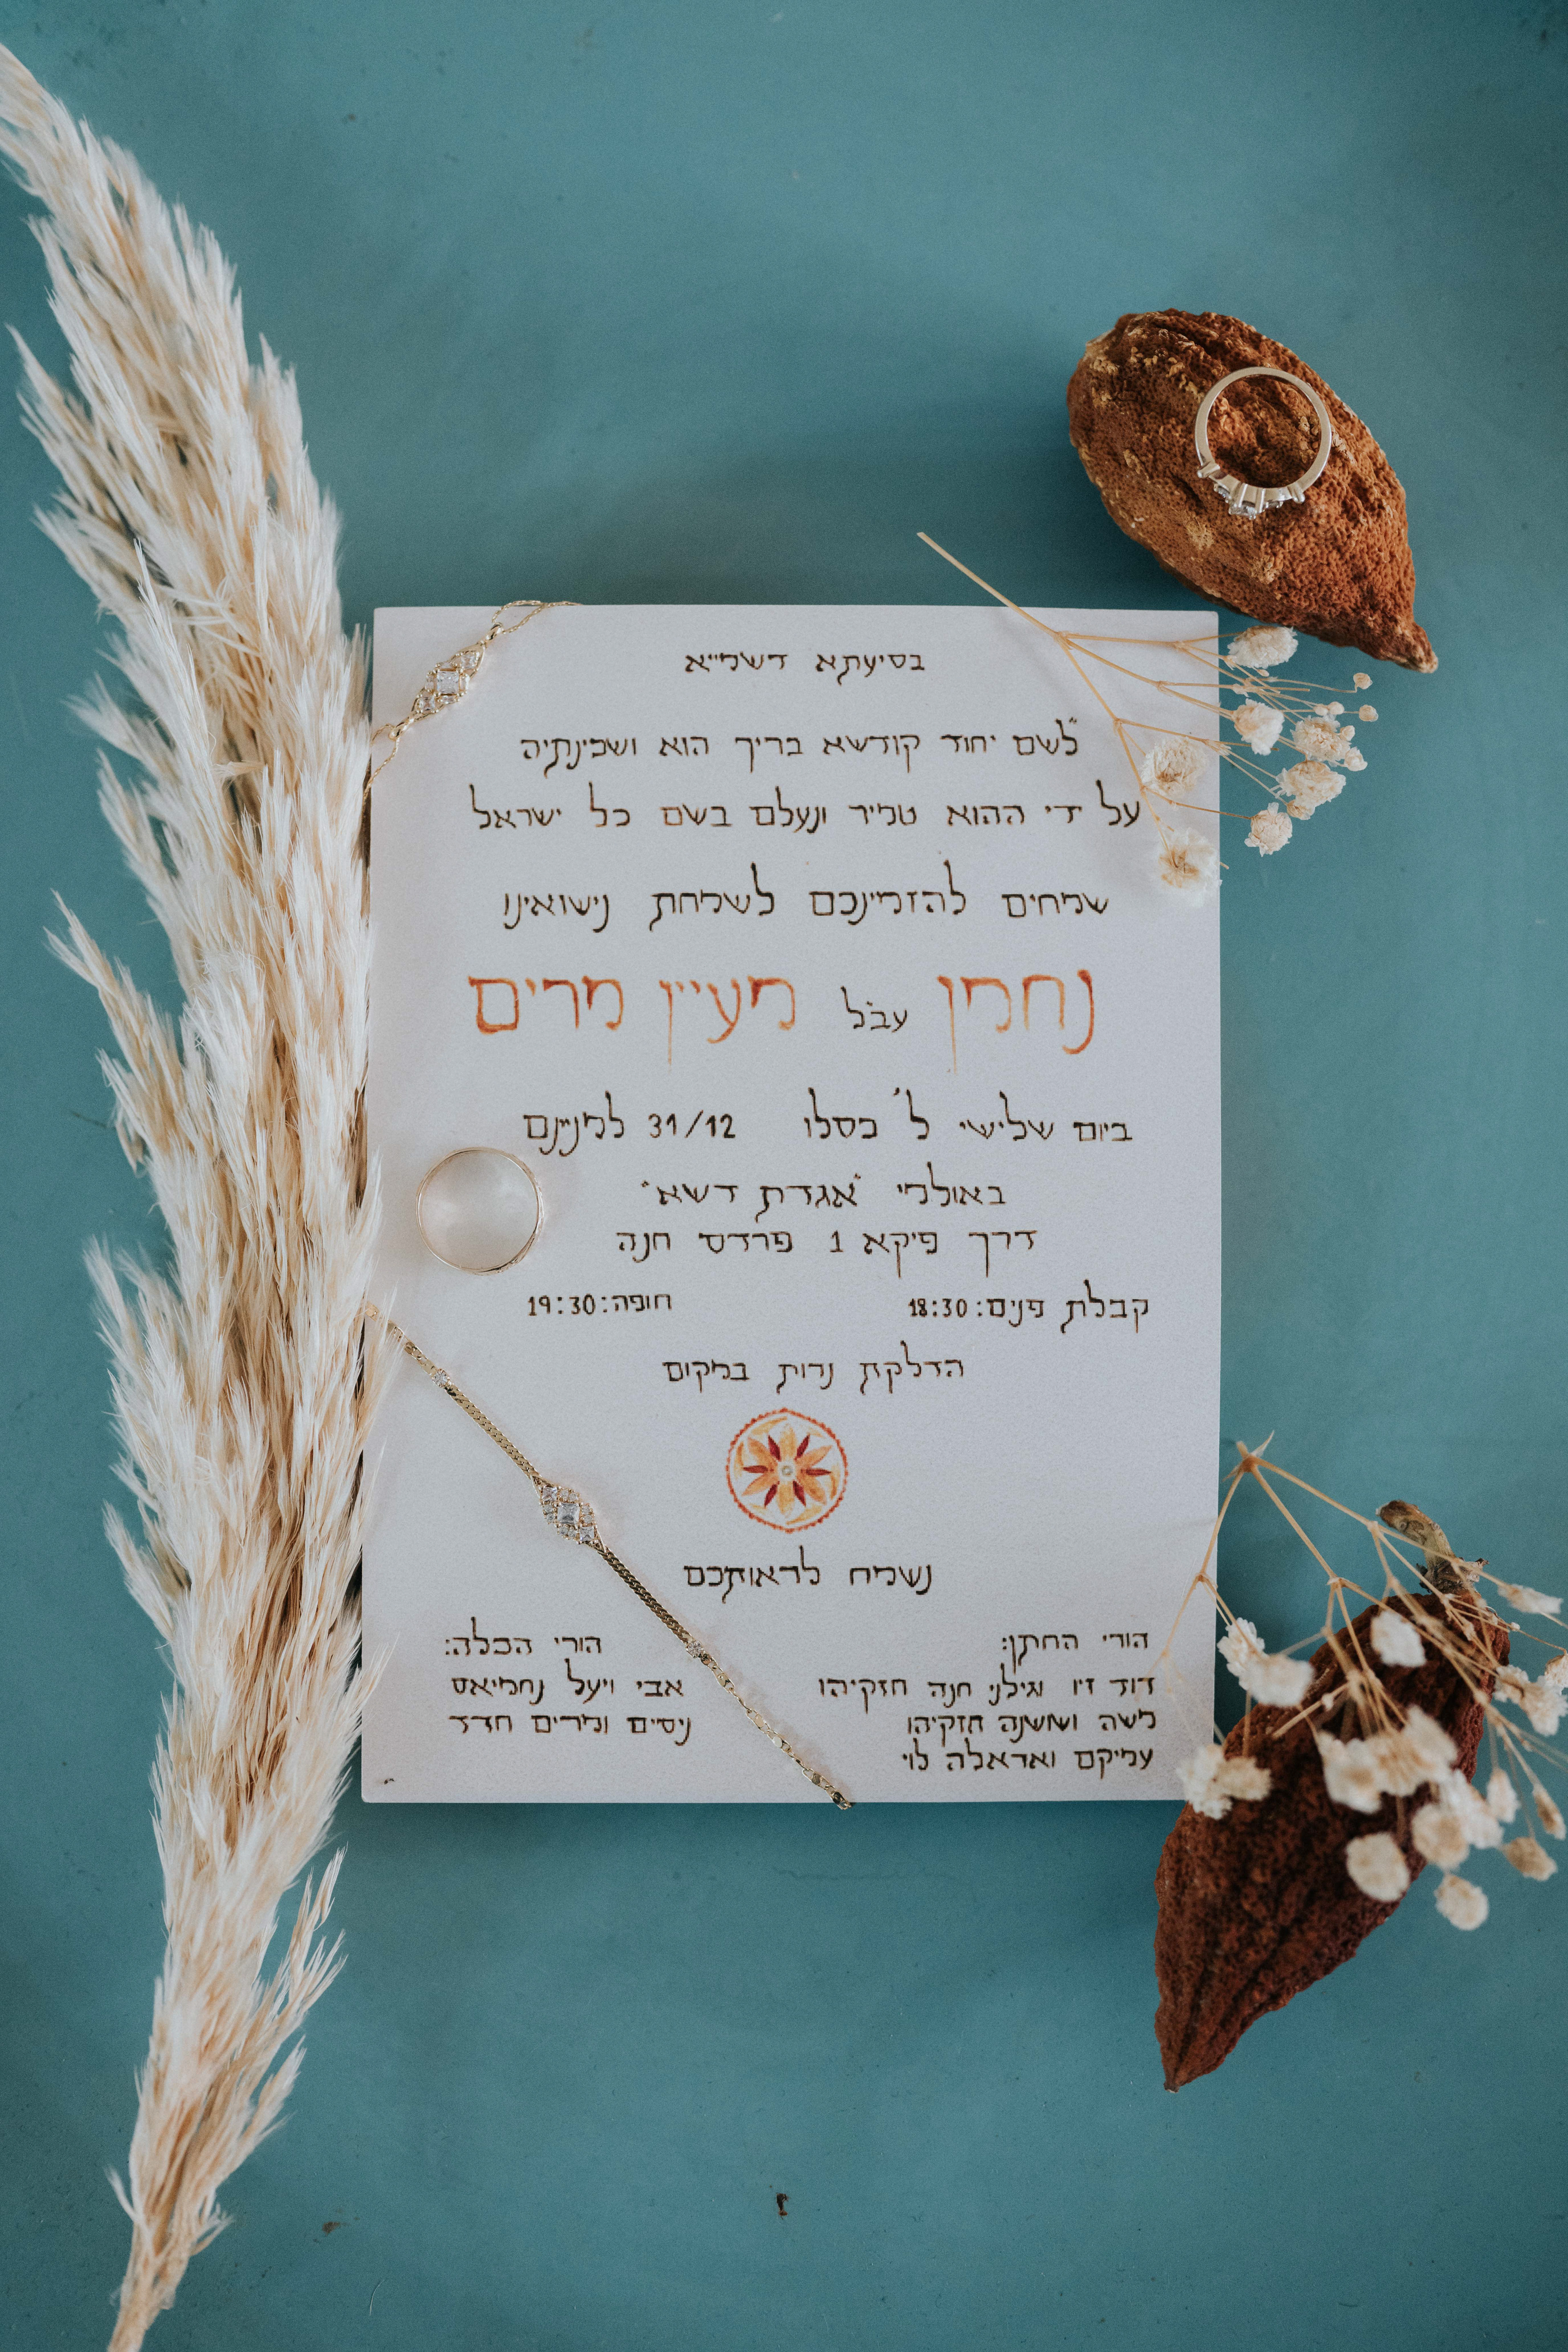 בסיעתא דשמייא
"לשם יחוד קודשא בריך הוא ושכינתיה
על ידי ההוא טמיר ונעלם בשם כל ישראל
שמחים להזמינכם לשמחת נישואינו
נחמן עב״ל מעיין מרים
ביום שלישי ל' כסלו 31/12 למניינם
באולמי "אגדת דשא"
דרך פיקא 1 פרדס חנה
קבלת פנים: 18:30 חופה: 19:30
הדלקת נרות במקום
נשמח לראותכם
הורי החתן:
דוד זיו וגילני חנה חזקיהו
משה ושושנה חזקיהו
עמיקם ואראלה לוי
הורי הכלה:
אבי ויעל נחמיאס
ניסים ומרים חדד